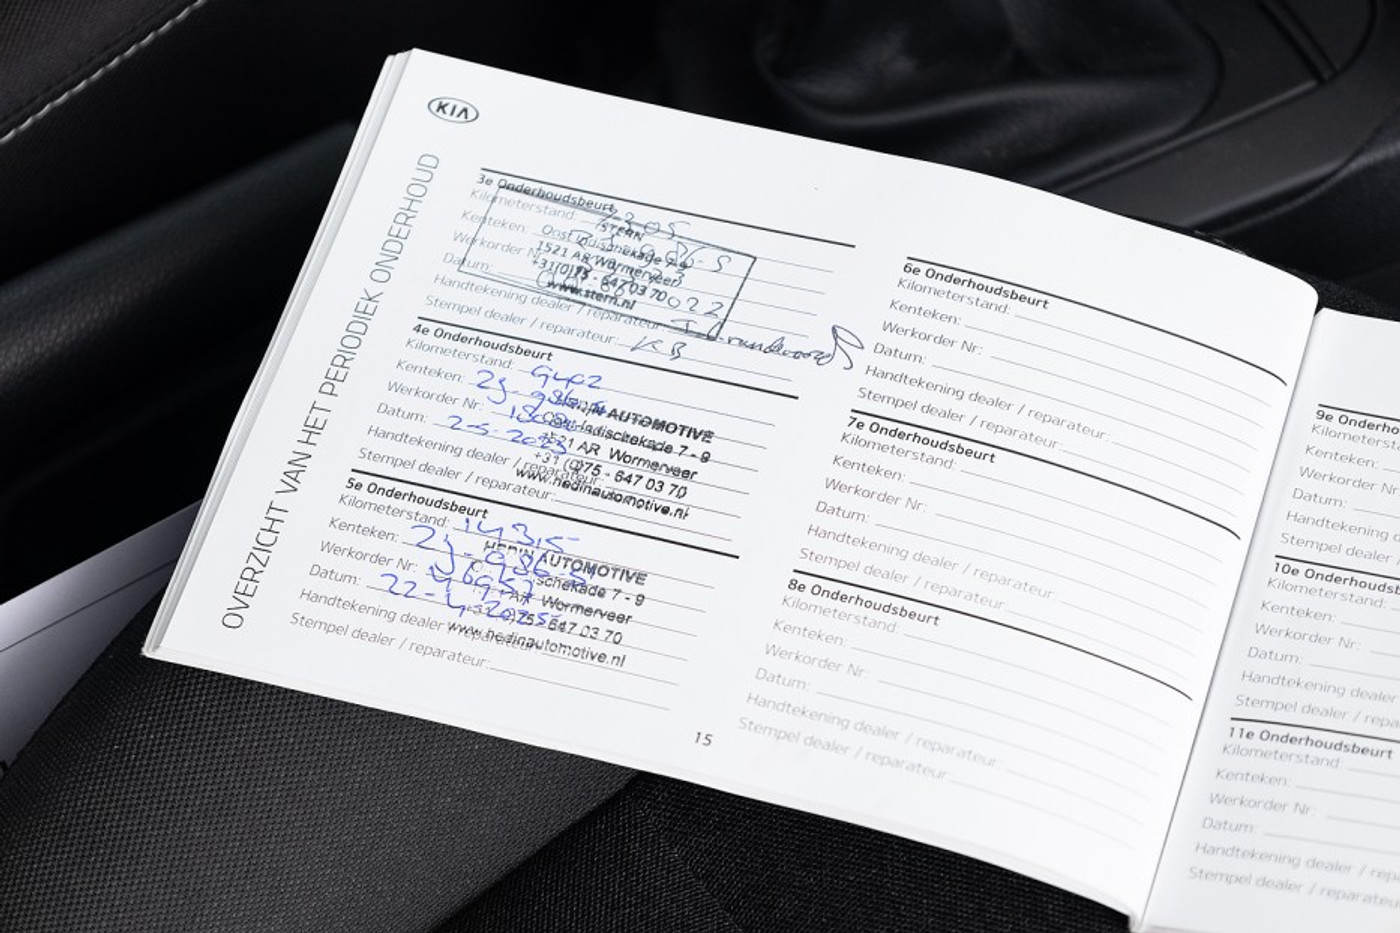 KIA
OVERZICHT VAN HET PERIODIEK ONDERHOUD
3e Onderhoudsbeurt
Kilometerstand: 7305
Kenteken:
Werkorder Nr:
Datum: 022
Handtekening dealer / reparateur:
Stempel dealer / reparateur: KB
STERN
Oost Indischekade 7-9
1521 AR Wormerveer
+31(0)75 - 647 03 70
www.stern.nl
4e Onderhoudsbeurt
Kilometerstand:
Kenteken:
Werkorder Nr:
Datum: 2-5-2023
Handtekening dealer / reparateur:
Stempel dealer / reparateur:
AUTOMOTIVE
Indischekade 7 - 9
1521 AR Wormerveer
+31 (0)75 - 647 03 70
www.hedinautomotive.nl
5e Onderhoudsbeurt
Kilometerstand:
Kenteken:
Werkorder Nr:
Datum: 22-4-2025
Handtekening dealer / reparateur:
Stempel dealer / reparateur:
HEDIN AUTOMOTIVE
schekade 7 - 9
AR Wormerveer
75 - 647 03 70
www.hedinautomotive.nl
15
6e Onderhoudsbeurt
Kilometerstand:
Kenteken:
Werkorder Nr:
Datum:
Handtekening dealer / reparateur:
Stempel dealer / reparateur:
7e Onderhoudsbeurt
Kilometerstand:
Kenteken:
Werkorder Nr:
Datum:
Handtekening dealer / reparateur:
Stempel dealer / reparateur:
8e Onderhoudsbeurt
Kilometerstand:
Kenteken:
Werkorder Nr:
Datum:
Handtekening dealer / reparateur:
Stempel dealer / reparateur:
9e Onderho
Kilometersta
Kenteken:
Werkorder Nr
Datum:
Handtekening d
Stempel dealer
10e Onderhoudsb
Kilometerstand:
Kenteken:
Werkorder Nr:
Datum:
Handtekening dealer
Stempel dealer / repa
11e Onderhoudsbeurt
Kilometerstand:
Kenteken:
Werkorder Nr:
Datum:
Handtekening dealer / re
Stempel dealer / reparateu